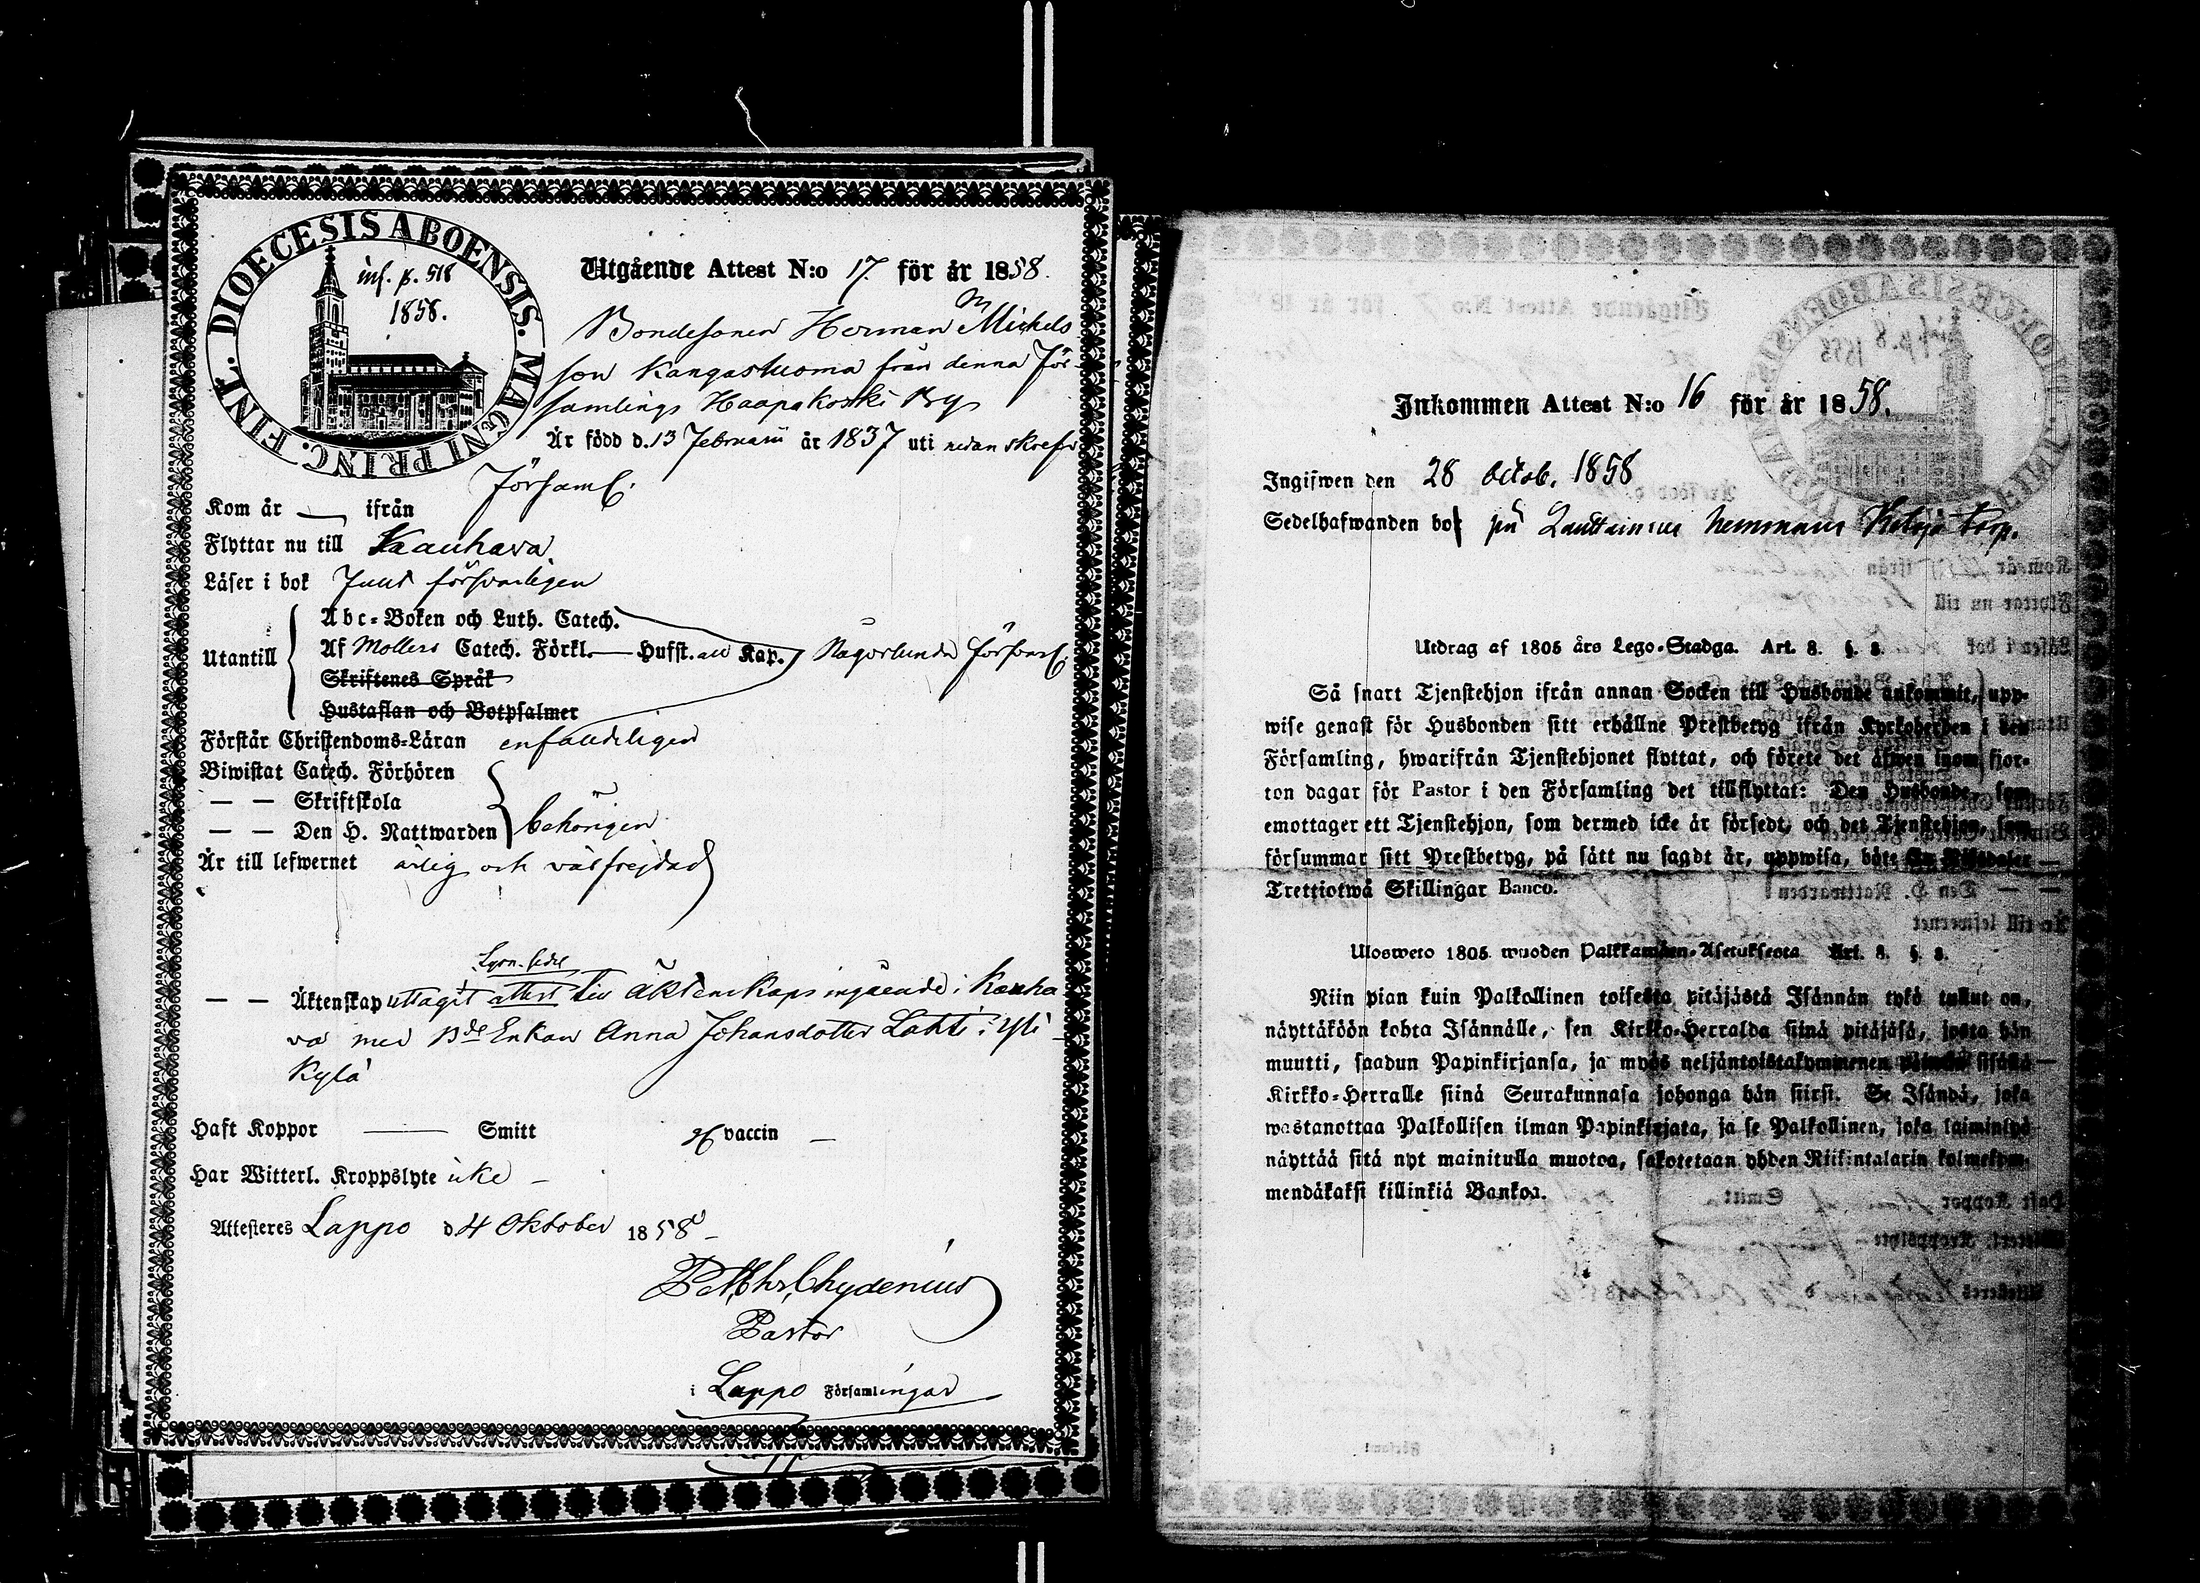 DIOECESIS ABOENSIS. MAGNI PRINC. FINL.
inf. p. 518
1858.
Utgående Attest N:o 17. för år 1858.
Bondesonen Herman Michels
son Kangasluoma från denna För-
samlings Haapakoski By
Är född d. 13 Februarii år 1837 uti nedanskrefne
Församl.
Kom år — ifrån
Flyttar nu till Kauhava.
Läser i bok Juut försvarligen
Abc-Boken och Luth. Catech.
Utantill Af Mollers Catech. Förkl. — Hufst. all Kap. Någorlunda försvarl
Skriftenes Språk
Hustaflan och Botpsalmer
Förstår Christendoms-Läran enfaldeligen
Biwistat Catech. Förhören
— — Skriftskola
— — Den H. Nattwarden behörigen
Är till lefwernet ärlig och välfrejdad
Lysn. sedel
— — Äktenskap uttagit attest till Äktenskaps ingående i Kauha
va med Bde Enkan Anna Johansdotter Lahti i Yli-
Kylä
Haft Koppor — Smitt vaccin —
Har Witterl. Kroppslyte icke —
Attesteres Lappo d. 4 Oktober 1858
Chydenius
Pastor
i Lappo Församlingar
Inkommen Attest N:o 16 för år 1858.
Ingifwen den 28 Octob. 1858
Sedelhafwanden bor på hemmans torp.
Utdrag af 1805 års Lego-Stadga. Art. 8. §. 8.
Så snart Tjenstehjon ifrån annan Socken till Husbonde ankommit, upp-
wise genast för Husbonden sitt erhållne Prestbetyg ifrån Kyrkoherden i den
Församling, hwarifrån Tjenstehjonet flyttat, och förete det äfwen inom fjor-
ton dagar för Pastor i den Församling det tillflyttat: Den Husbonde, som
emottager ett Tjenstehjon, som dermed icke är försedt, och det Tjenstehjon, som
försummar sitt Prestbetyg, på sätt nu sagdt är, uppwisa, böte En Riksdaler
Trettiotwå Skillingar Banco.
Ulosweto 1805 wuoden Palkkawäen-Asetuksesta Art. 8. §. 8.
Niin pian kuin Palkollinen toisesta pitäjästä Isännän tykö tullut on,
näyttäköön kohta Isännälle, sen Kirkko-Herralda siinä pitäjäsä, josta hän
muutti, saadun Papinkirjansa, ja myös neljäntoistakymmenen päiwän sisällä
Kirkko-Herralle siinä Seurakunnasa johonga hän siirsi. Se Isändä, joka
wastanottaa Palkollisen ilman Papinkirjata, ja se Palkollinen, joka laiminlyö
näyttää sitä nyt mainitulla muotoa, sakotetaan yhden Riikintalarin kolmekym-
mendäkaksi killinkiä Bankoa.